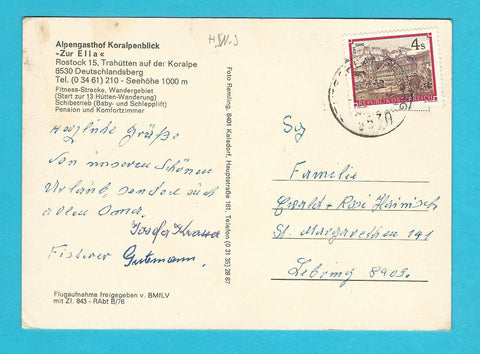 Alpengasthof Koralpenblick
»Zur Ella«
Rostock 15, Trahütten auf der Koralpe
8530 Deutschlandsberg
Tel. (0 34 61) 210 - Seehöhe 1000 m
Fitness-Strecke, Wandergebiet
(Start zur 13 Hütten-Wanderung)
Schibetrieb (Baby- und Schlepplift)
Pension und Komfortzimmer
Herzliche Grüße
von unseren schönen
Urlaub, sendet euch
allen Oma.
Josefa
Fisterer Gutsmann.
Flugaufnahme freigegeben v. BMfLV
mit Zl. 843 - RAbt B/76
Foto Remling, 8401 Kalsdorf, Hauptstraße 161, Telefon (0 31 35) 26 87
4 S
REPUBLIK ÖSTERREICH
Familie
Ewald + Rosi
St. Margarethen 141
Lebring 8403.